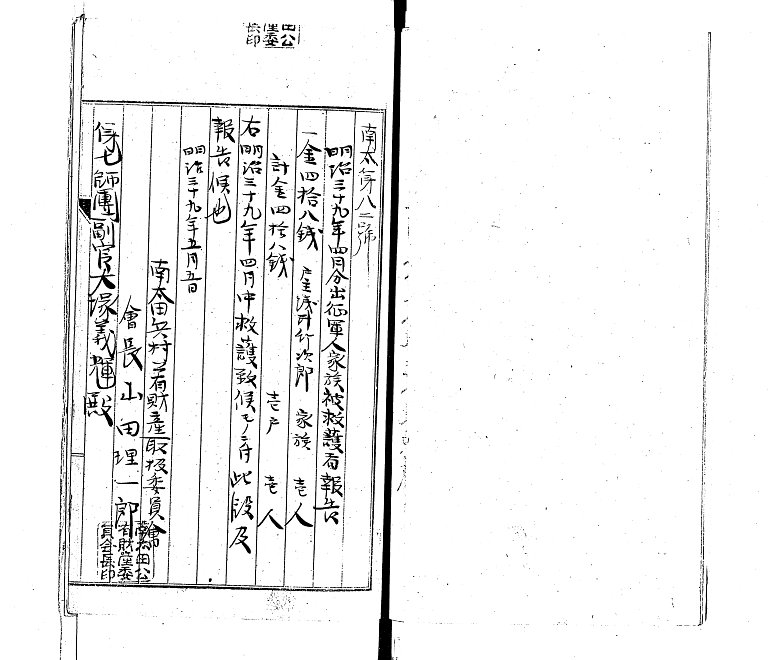 南太第八二號
明治三十九年四月分出征軍人家族被救護者報告
一金四拾八錢 浅井竹次郎 家族 壱人
計金四拾八錢 壱戸 壱人
右明治三十九年四月中救護致候モノニ付此段及
報告候也
明治三十九年五月五日
南太田 村 有財產取扱委員會
會長山田理一郎
南太田公
有財産委
員会長印
師團副官大塚義輝殿
田公
産委
長印